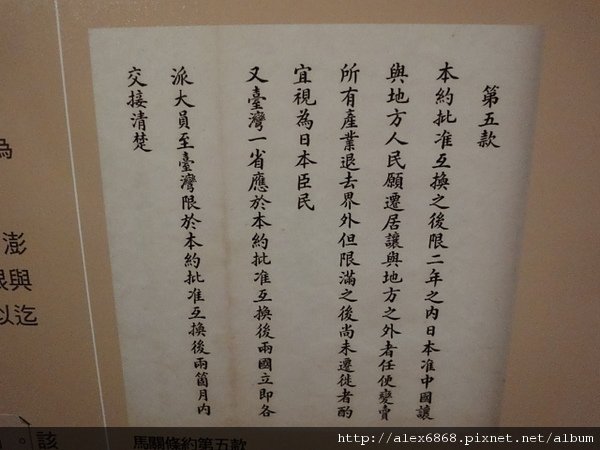 第五款
本約批准互換之後限二年之內日本准中國讓
與地方人民願遷居讓與地方之外者任便變賣
所有產業退去界外但限滿之後尚未遷徙者酌
宜視為日本臣民
又臺灣一省應於本約批准互換後兩國立即各
派大員至臺灣限於本約批准互換後兩箇月內
交接清楚
為
澎
限與
以迄
該
馬關條約第五款
http://alex6868.pixnet.net/album